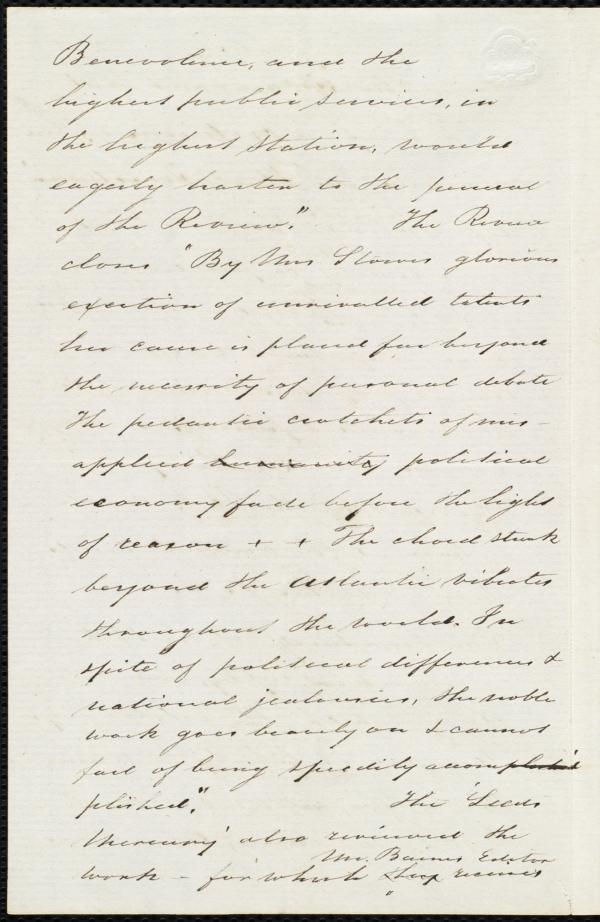 Benevolence, and the
highest public services, in
the highest station, would
eagerly hasten to the funeral
of the Review." The Review
closes "By Mrs Stowes glorious
exertion of unrivalled talents
her cause is placed far beyond
the necessity of personal debate
The pedantic crotchets of mis-
applied humanity political
economy fade before the light
of reason + + The chord struck
beyond the Atlantic vibrates
throughout the world. In
spite of political differences &
national jealousies, the noble
work goes bravely on & cannot
fail of being speedily accom
plished." The 'Leeds
Mercury' also reviewed the
Mr. Baines Editor
work - for which receives